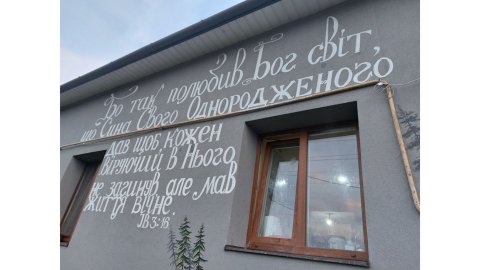 Бо так полюбив Бог світ,
що Сина Свого Однородженого
дав щоб кожен
віруючий в Нього
не загинув але мав
життя вічне.
Ів 3:16